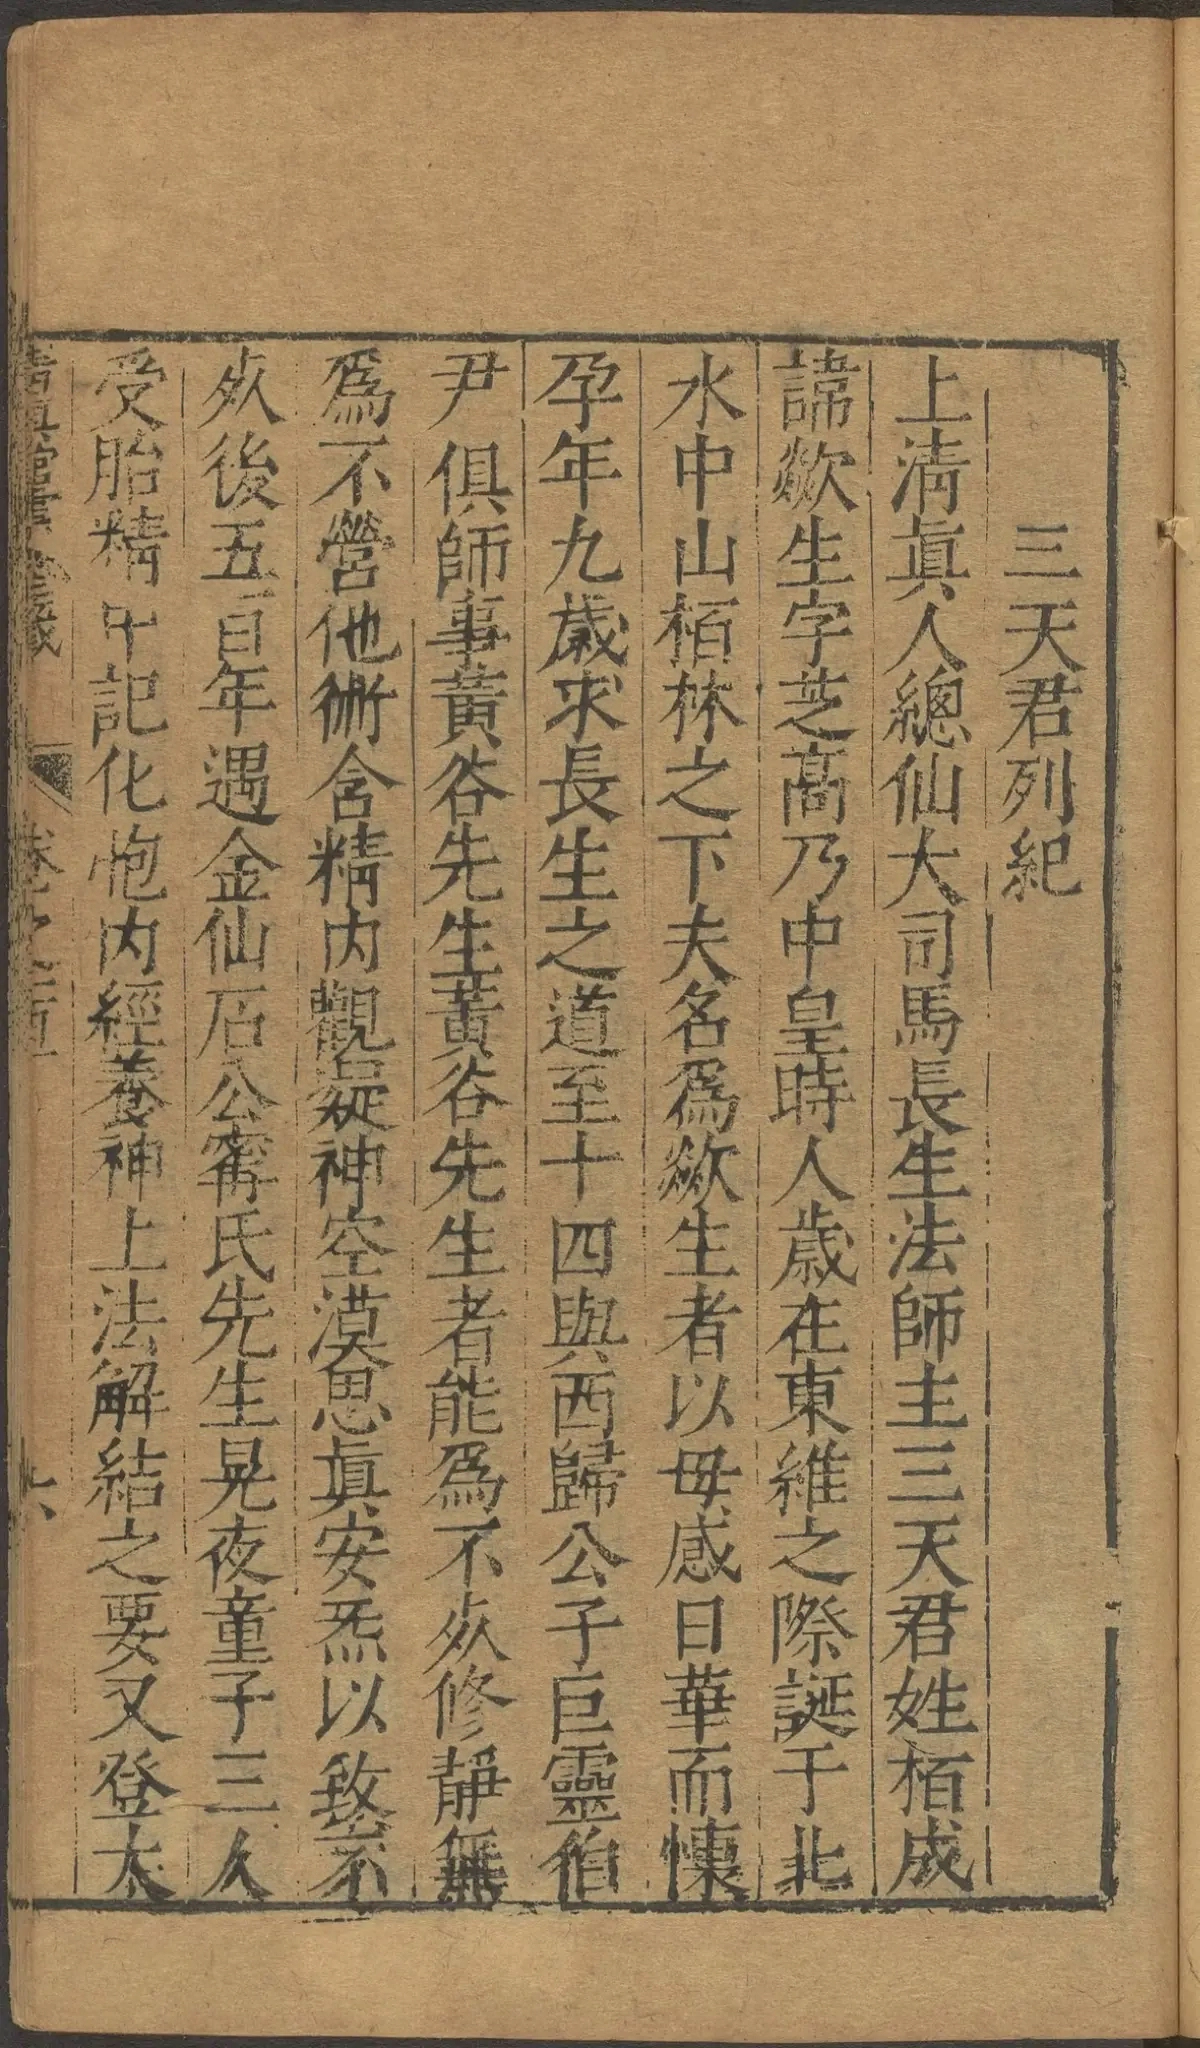 三天君列紀
上清眞人總仙大司馬長生法師主三天君姓栢成
諱欻生字芝髙乃中皇時人歳在東維之際誕于北
水中山栢林之下夫名爲欻生者以母感日華而懷
孕年九歲求長生之道至十四與西歸公子巨靈伯
尹俱師事黄谷先生黄谷先生者能爲不㱔修靜無
爲不營他術含精内觀凝神空漠思眞安炁以致不
㱔後五百年遇金仙石公甯氏先生晃夜童子三人
受胎精中記化胞内經養神上法解結之要又登太
卷之
六